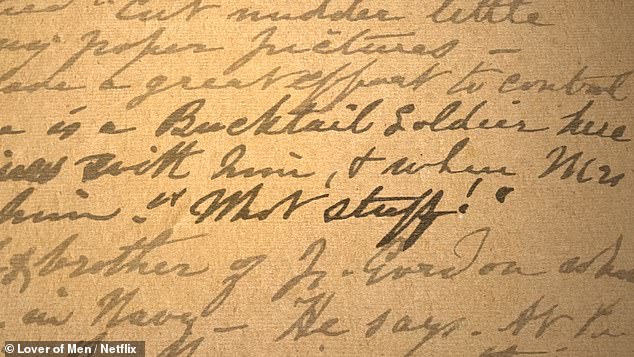 "Cut nudder little
my paper pictures —
a great effort to control
is a Bucktail Soldier here
with him, & when Mrs
him — "What stuff!"
brother of Jr. Gordon who
in Navy — He says. At
© Lover of Men / Netflix